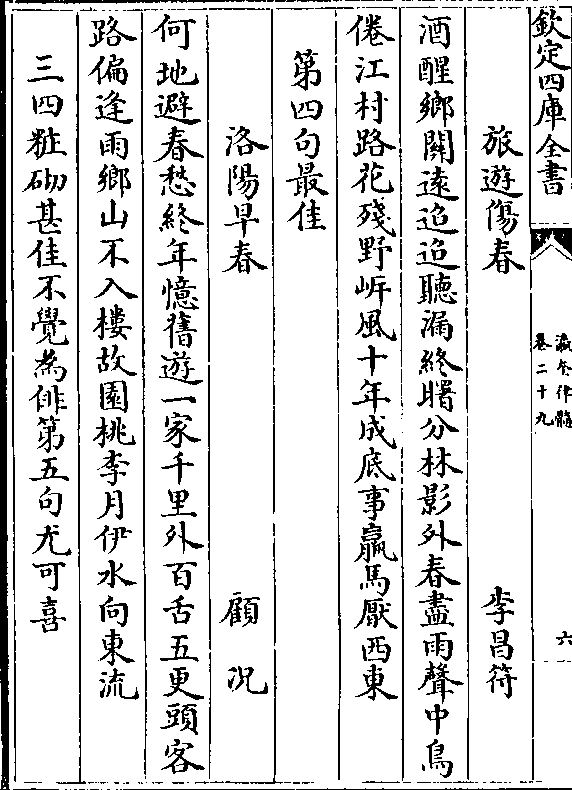 欽定四庫全書
瀛奎律髓
卷二十九
六
旅遊傷春 李昌符
酒醒鄉關遠迢迢聽漏終曙分林影外春盡雨聲中鳥
倦江村路花殘野岍風十年成底事羸馬厭西東
第四句最佳
洛陽早春 顧況
何地避春愁終年憶舊遊一家千里外百舌五更頭客
路偏逢雨鄉山不入樓故園桃李月伊水向東流
三四粧砌甚佳不覺為俳第五句尤可喜